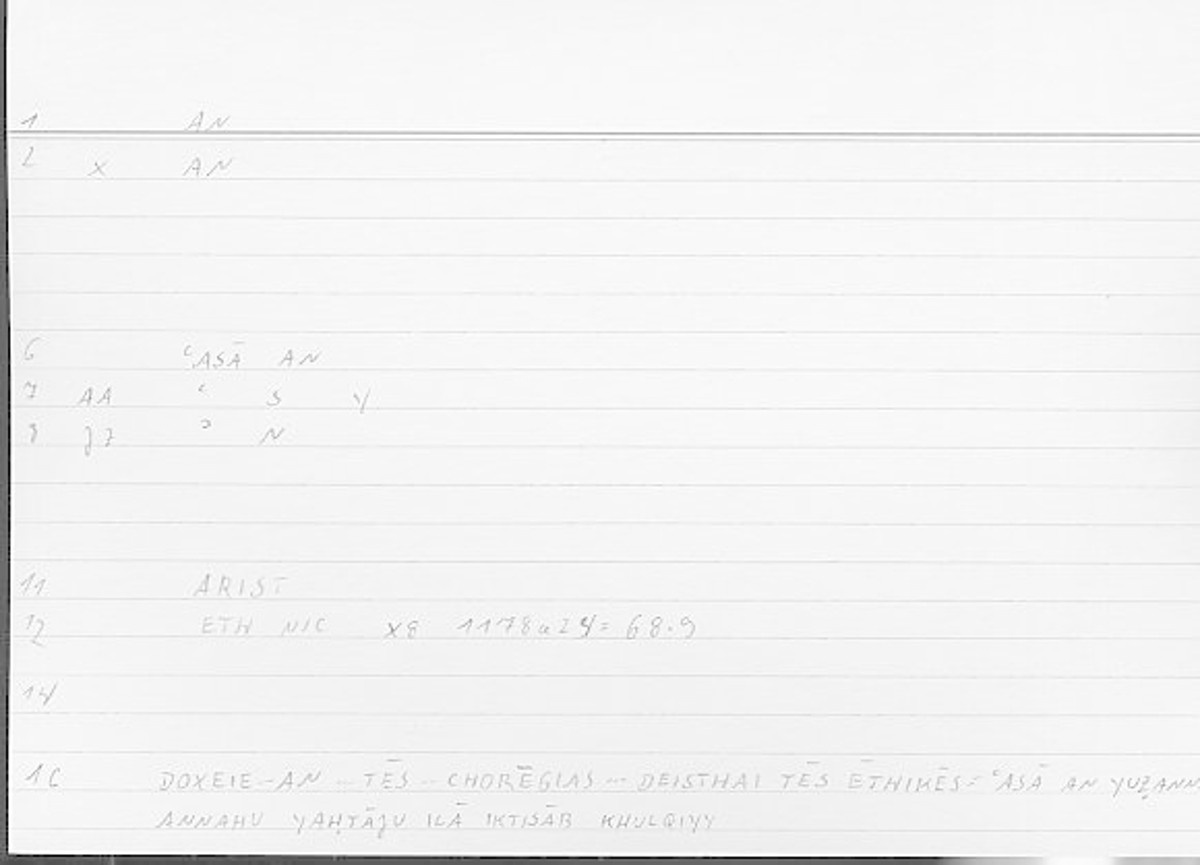 1 AN
2 x AN
6 ʿASĀ AN
7 AA ʿ S Y
8 jz ʾ N
11 ARIST
12 ETH NIC X8 1178a24= 68.9
14
DOXEIE-AN -- TĒS -- CHORĒGIAS --- DEISTHAI TĒS ĒTHIKĒS = ʿASĀ AN YUẒANN
ANNAHU YAḤTĀJU ILĀ IKTISĀB KHULQIYY